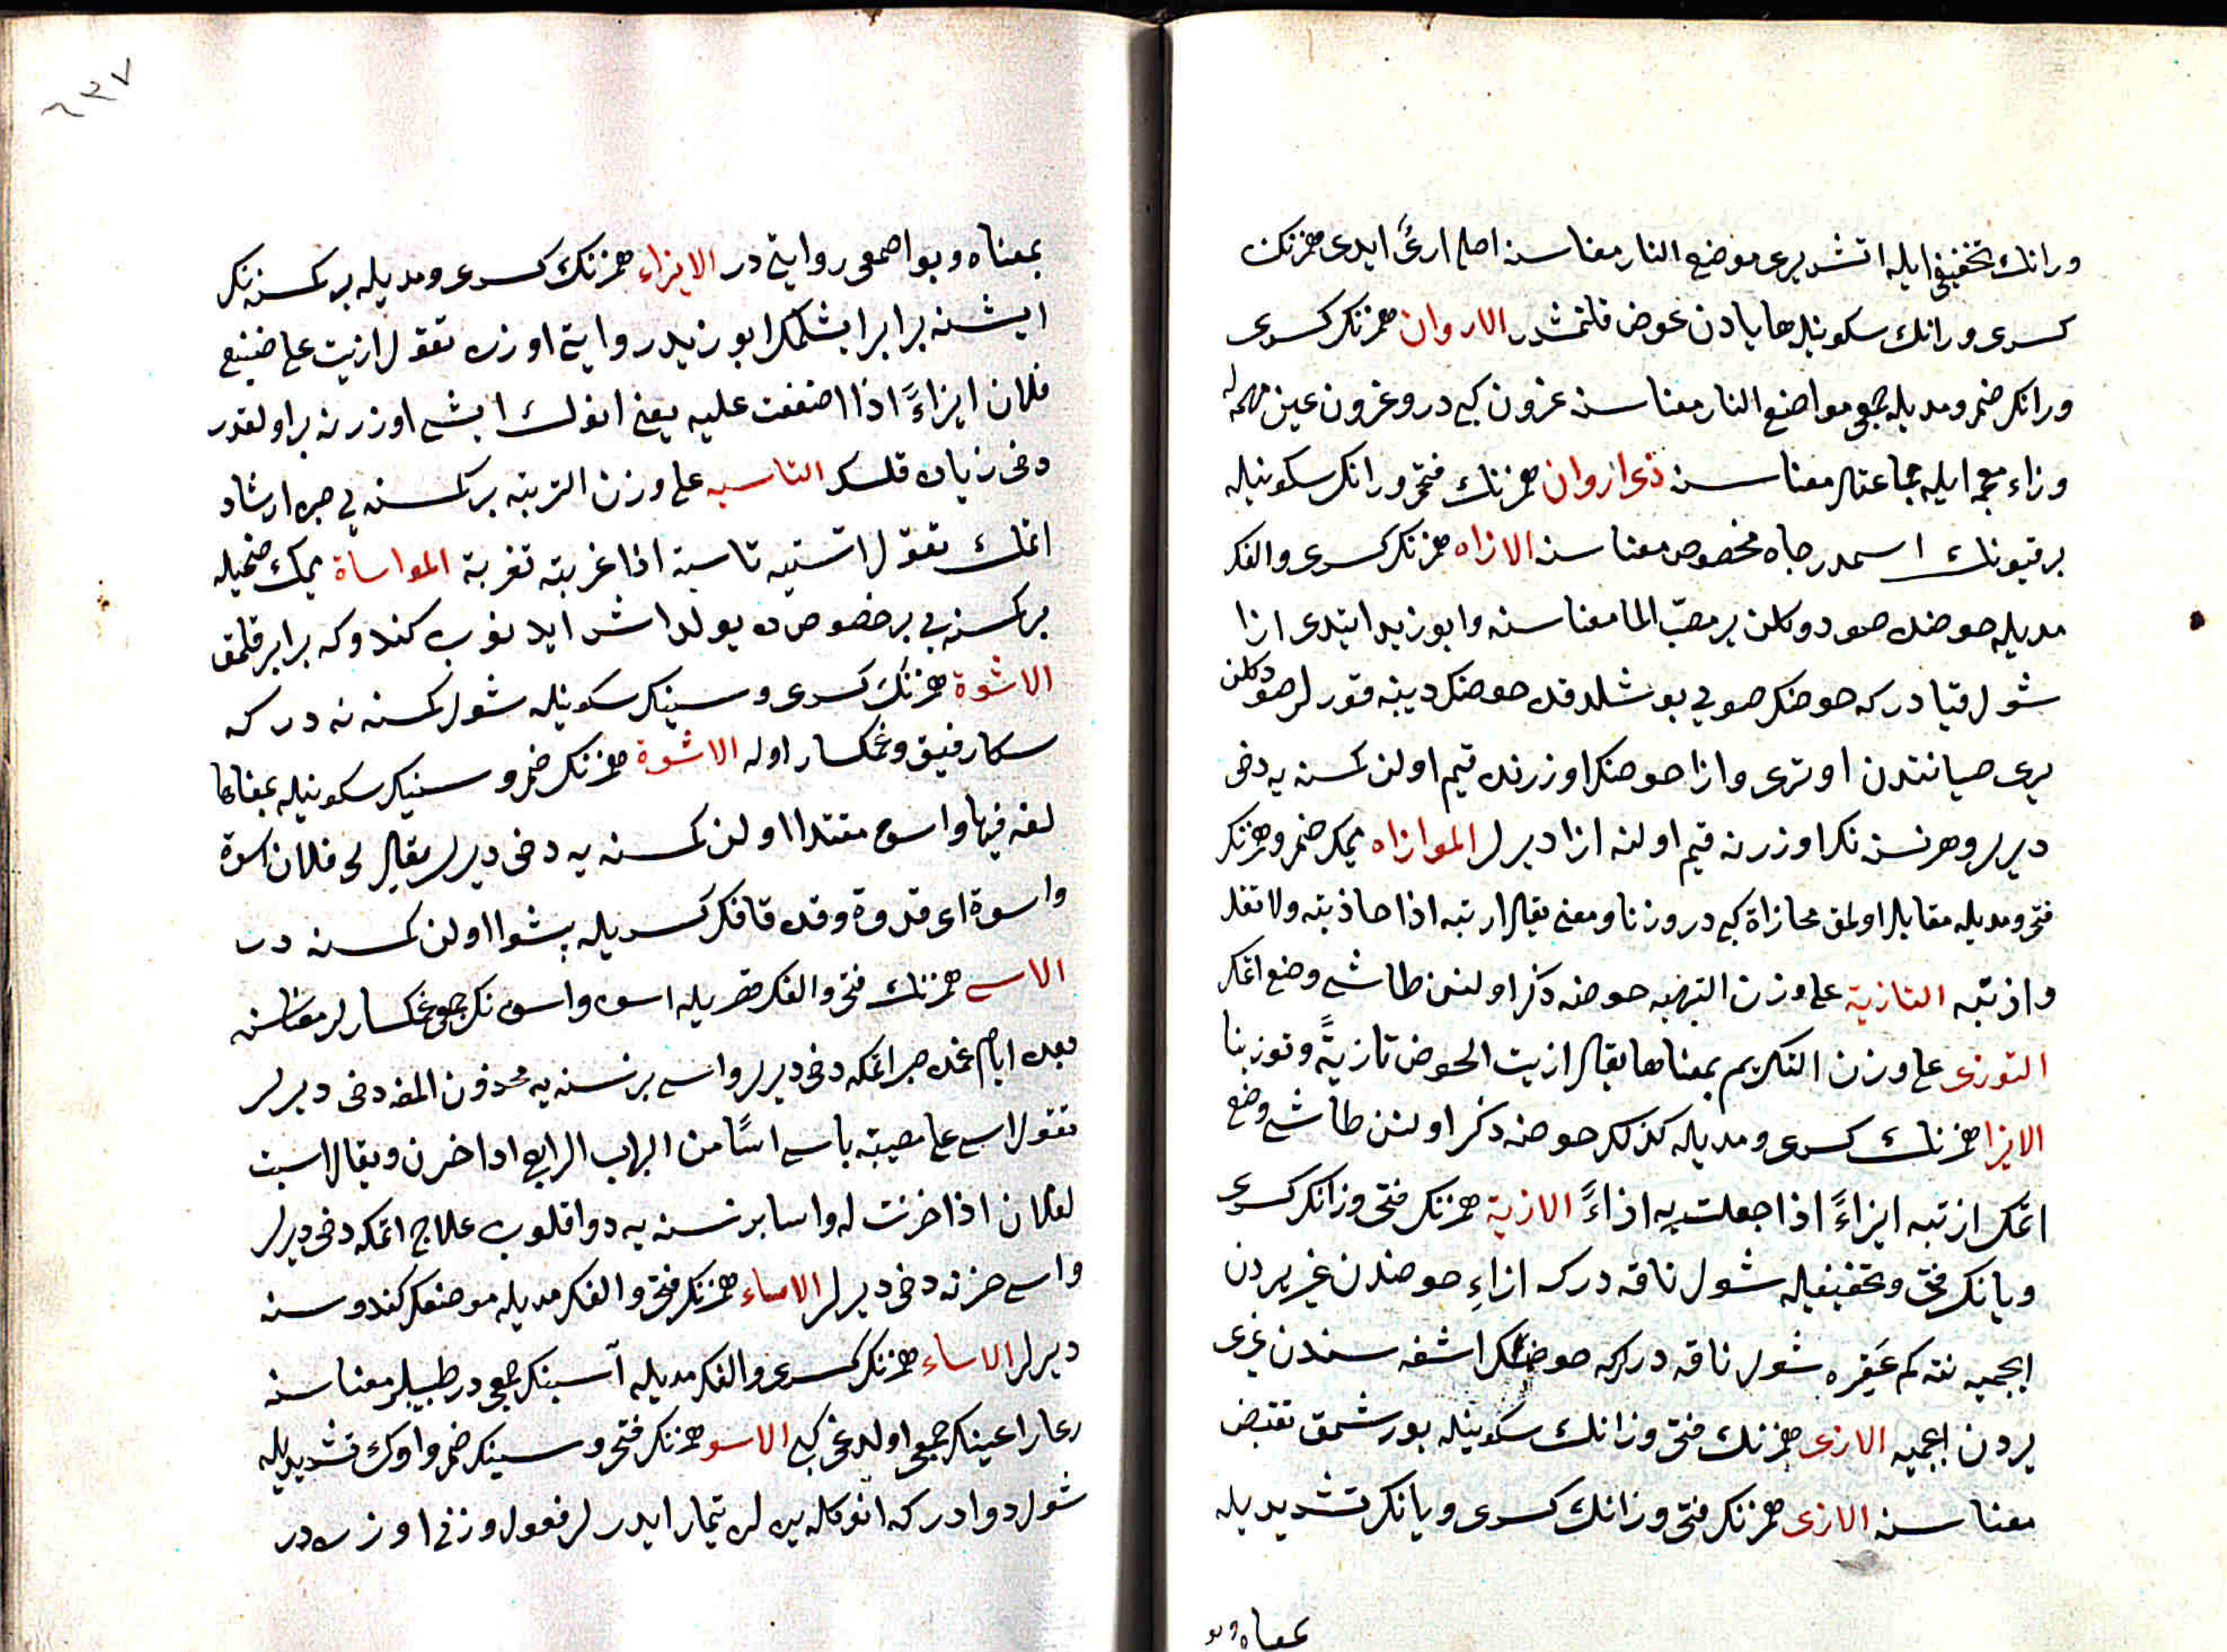 ورانك تخفيفى ايله اتش يرى موضع النار معناسنه اصلى ارئ ايدى همزنك
كسرى ورانك سكونيله ها يادن عوض قلنمشدر الاروان همزنك كسرى
ورانك ضمى ومديله جمعى مواضع النار معناسنه عزون كبى در وعزون عين مهمله
وزاء معجمه ايله جماعتلر معناسنه ذى اروان همزنك فتحى ورانك سكونيله
بر قيونك اسمدر جاه مخصوص معناسنه الازاه همزنك كسرى والفك
مديله حوضده صو دوكلن ير مصب الما معناسنه وابو زيد ايتدى ازا
شول قيادر كه حوضك صويى بوشلدقده حوضك ديبنه قورلر صو دوكلن
يرى صيانتدن اوترى وازا حوضك اوزرنده قيم اولن كمسنه يه دخى
ديرلر وهر نسنه نك اوزرنه قيم اولنه ازا ديرلر الموازاه ميمك ضمى وهمزنك
فتحى ومديله مقابله اولمق محازاة كبى در وزنا ومعنى يقال ازيته اذا حاذيته ولا تقل
وازيته التازية على وزن التربيه حوضه ذكر اولنن طاشى وضع اتمك
التوزى على وزن التكريم بمعناها يقال ازيت الحوض تازيةً وتوزيئا
الايزا همزنك كسرى ومديله كذلك حوضه ذكر اولنن طاشى وضع
اتمك ازيته ايزاءً اذا جعلت به اذاءً الازية همزنك فتحى وزانك كسرى
ويانك فتحى وتخفيفيله شول ناقه در كه ازاءِ حوضدن غيرى يردن
ايچميه نته كم عَقِره شول ناقه در كه حوضك اشغه سندن غيرى
يردن ايچميه الازى همزنك فتحى وزانك سكونيله بورشمق تقبض
معناسنه الازى همزنك فتحى وزانك كسرى ويانك تشديديله
بمعناه وبو
بمعناه وبو اصمعى روايتى در الايزاء همزنك كسرى ومديله بر كمسنه نك
ايشنه برابر ايشلمك ابو زيد روايتى اوزره تقول ازيت على صنيع
فلان ايزاءً اذا اضعفت عليه يعنى انوك ايشى اوزرنه بر اولقدر
دخى زياده قلسك التاسيه على وزن التربيه بر كمسنه يى صبره ارشاد
اتمك تقول اسّيته تاسية اذا عزيته تعزية المواساة ميمك ضميله
بر كمسنه يى بر خصوصده يولداش ايدنوب كندوكه برابر قلمق
الاسوة همزنك كسرى وسينك سكونيله شول كمسنه نه در كه
سكا رفيق وغمكسار اوله الاسوة همزنك ضمى وسينك سكونيله بمعناها
لغه فيها واسوه مقتدا اولن كمسنه يه دخى ديرلر يقال لى فلان اسوة
واسوة اى قدوة وقده قافك كسريله پيشوا اولن كمسنه در
الاسى همزنك فتحى والفك قصريله اسوه واسوه نك جمعى غمكسارلر معناسنه
بعده ايام غمده صبر اتمكه دخى ديرلر واسى بر نسنه يه محزون المغه دخى ديرلر
تقول اسى على مصيبته ياسى اسًا من الباب الرابع اذا حزن ويقال اسيت
لفلان اذا حزنت له واسا بر نسنه يه دوا قلوب علاج اتمكه دخى ديرلر
واسى حزنه دخى ديرلر الاساء همزنك فتحى والفك مديله موضعك كندوسنه
ديرلر الاساء همزنك كسرى والفك مديله آسينك جمعى در طبيبلر معناسنه
رعا راعينك جمعى اولدغى كبى الاسو همزنك فتحى وسينك ضمى واوك تشديديله
شول دوادر كه انوكله يره لره تيمار ايدرلر فعول وزنى اوزره در